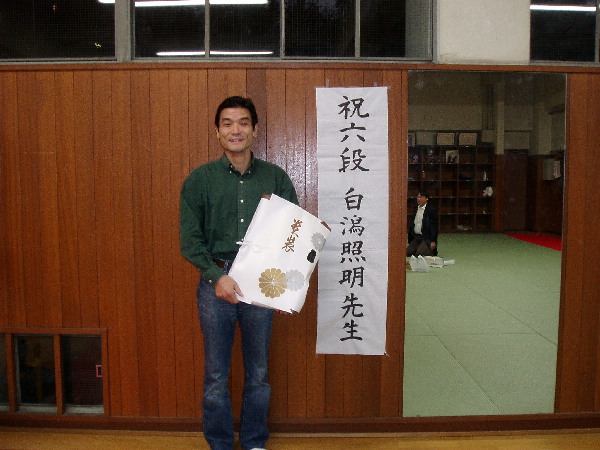 祝六段 白潟照明先生